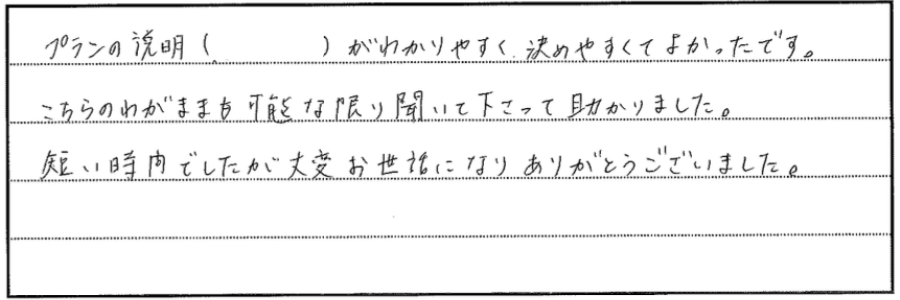 プランの説明(　　　)がわかりやすく、決めやすくてよかったです。
こちらのわがままも可能な限り聞いて下さって助かりました。
短い時間でしたが大変お世話になりありがとうございました。